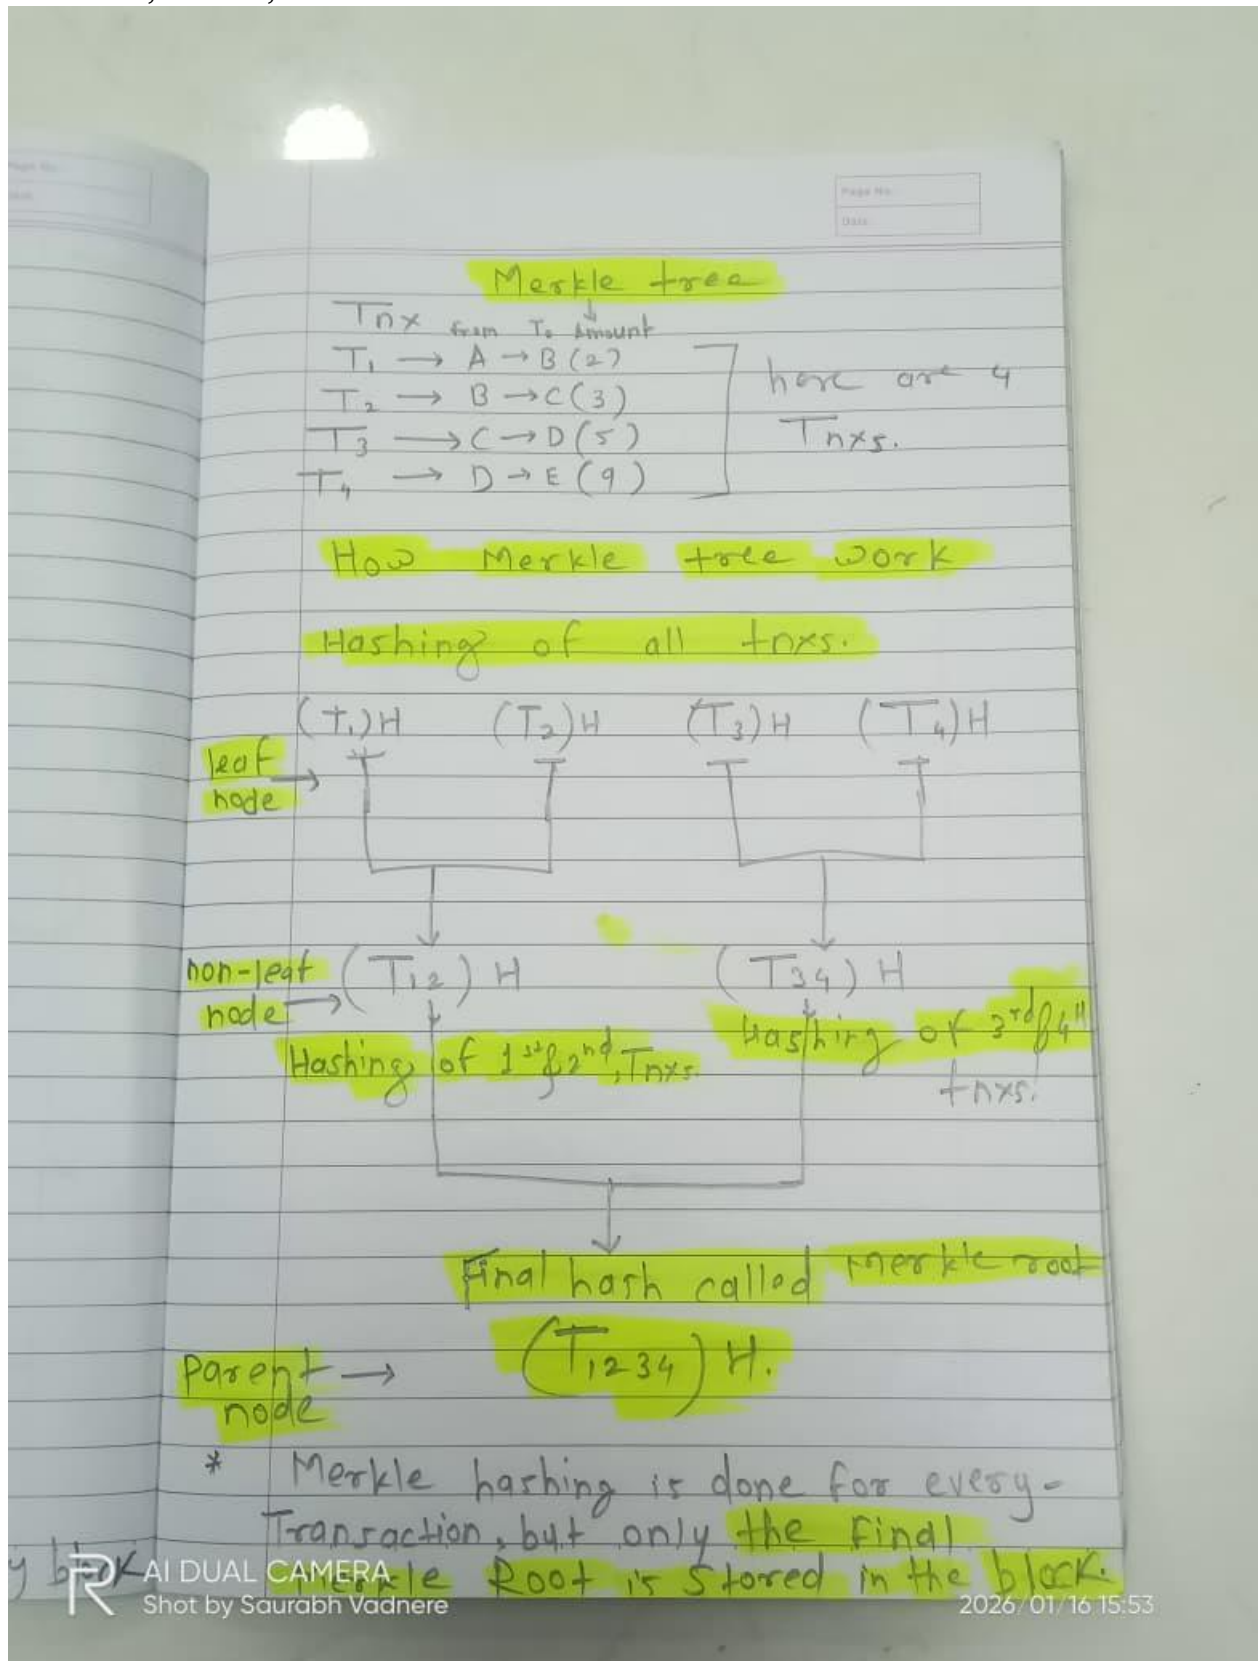 Page No.
Date
Page No.
Date
Merkle tree
Tnx from To Amount
T1 → A → B (2)
T2 → B → C (3)
T3 → C → D (5)
T4 → D → E (9)
here are 4
Tnxs.
How Merkle tree work
Hashing of all tnxs.
(T1)H (T2)H (T3)H (T4)H
leaf
node →
non-leaf
node →
(T12) H (T34) H
Hashing of 1st & 2nd, Tnxs.
Hashing of 3rd & 4th
tnxs.
Final hash called Merkle root
Parent
node → (T1234) H.
* Merkle hashing is done for every-
Transaction, but only the Final
Merkle Root is stored in the block.
block
AI DUAL CAMERA
Shot by Saurabh Vadnere
2026/01/16 15:53